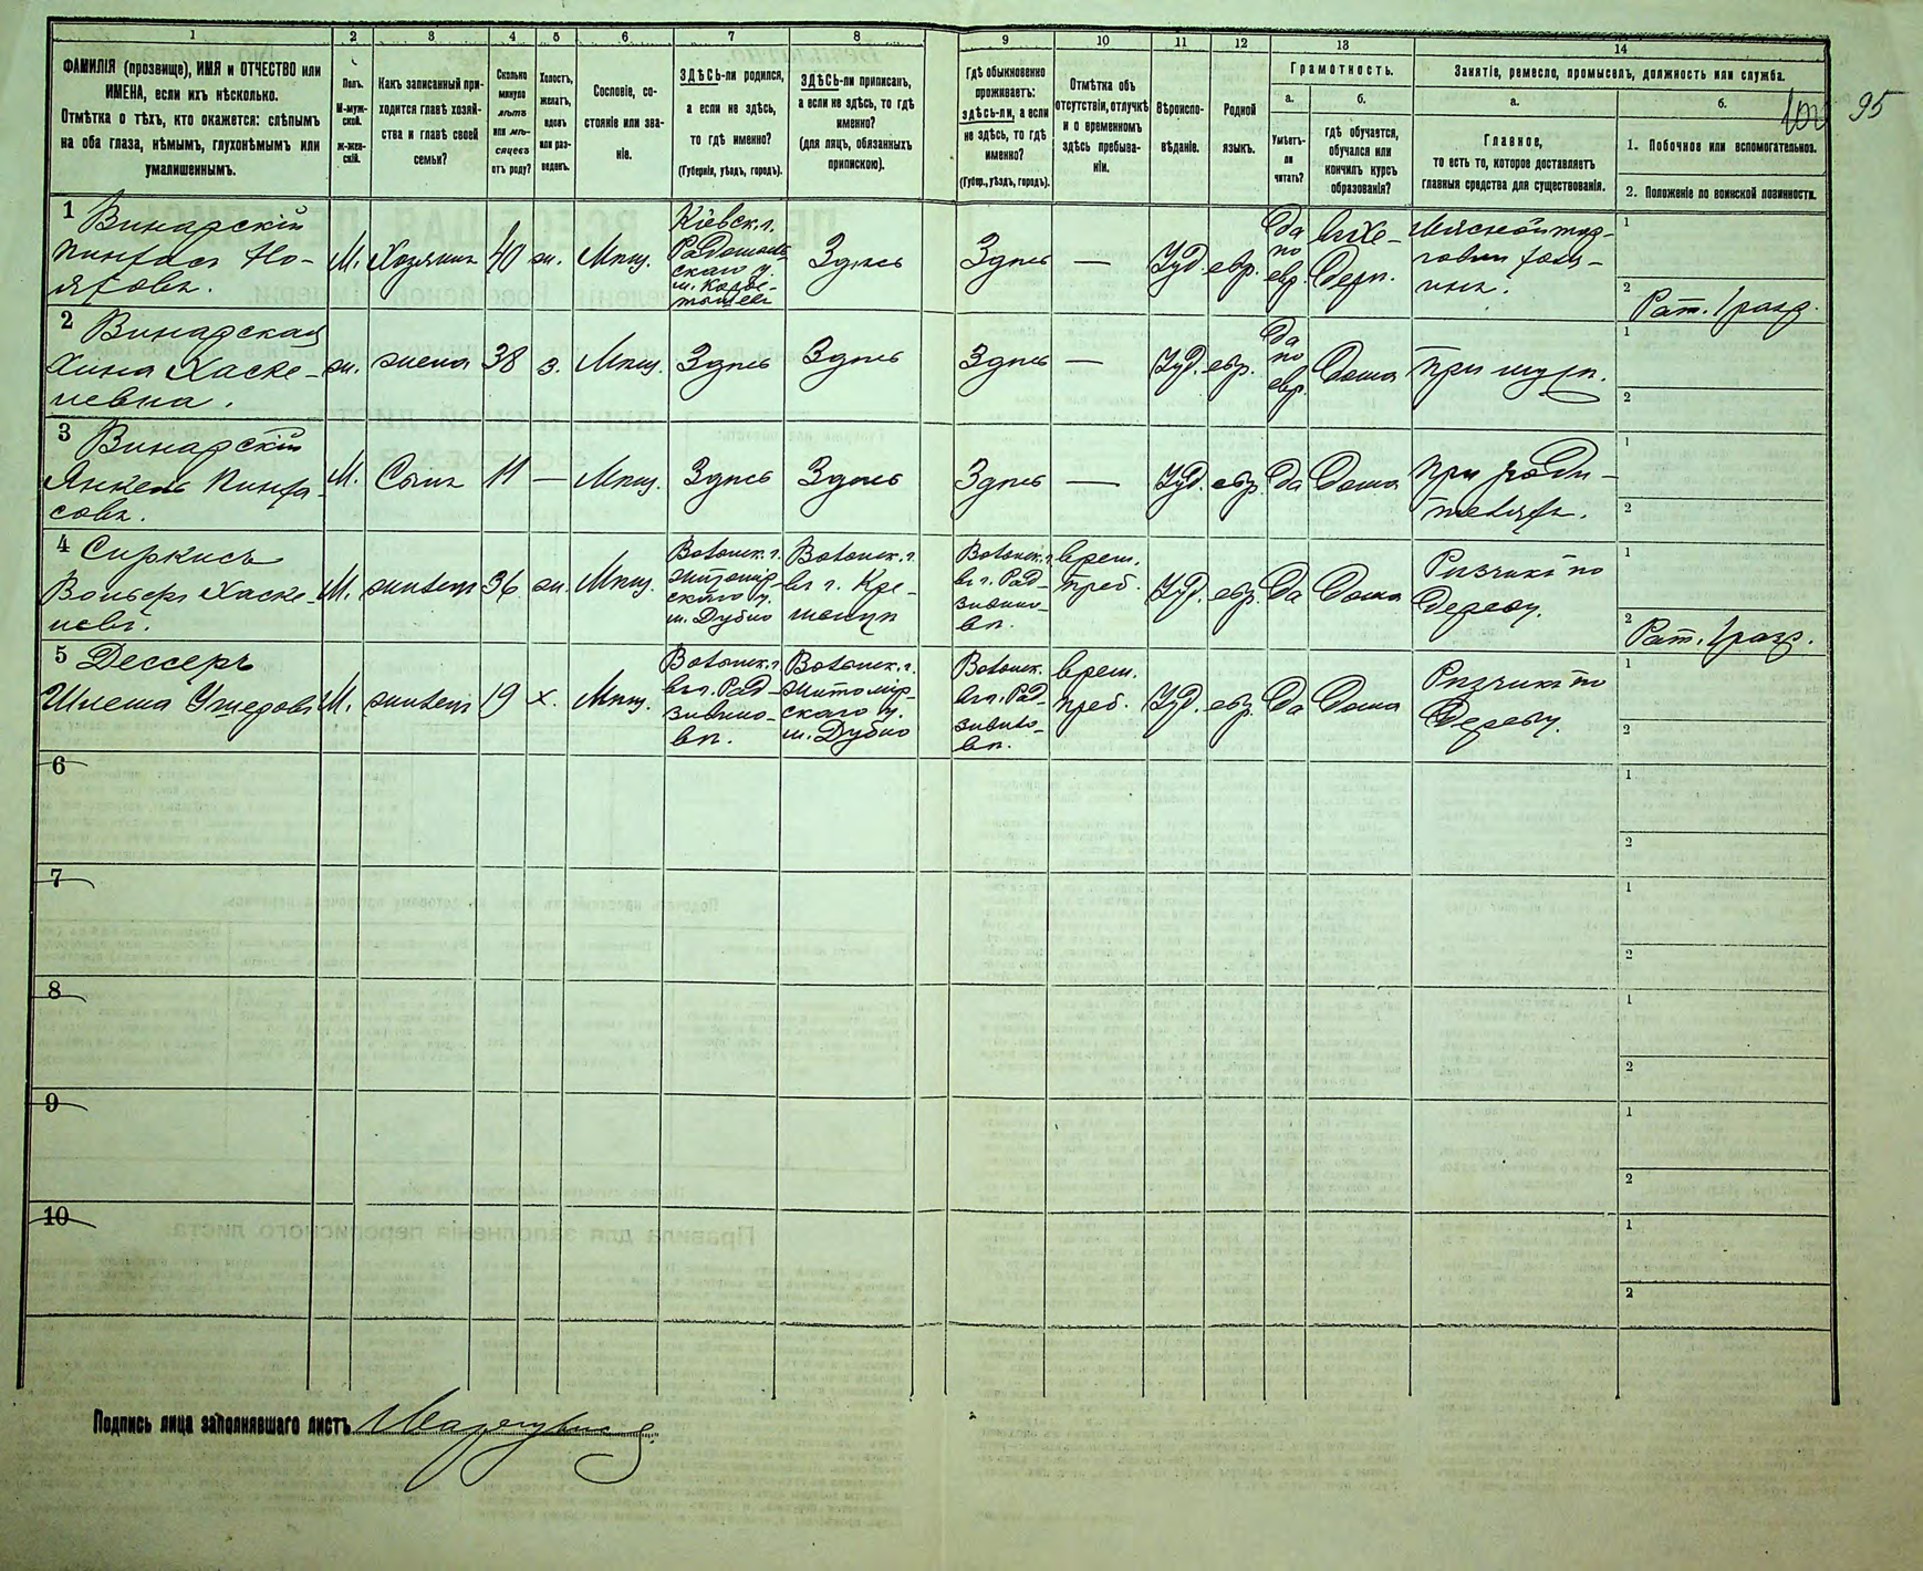 1 2 3 4 5 6 7 8 9 10 11 12 13 14
95
ФАМИЛІЯ (прозвище), ИМЯ и ОТЧЕСТВО или
ИМЕНА, если ихъ нѣсколько.
Отмѣтка о тѣхъ, кто окажется: слѣпымъ
на оба глаза, нѣмымъ, глухонѣмымъ или
умалишеннымъ.
Полъ.
М-муж-
ской.
Ж-жен-
скій.
Какъ записанный при-
ходится главѣ хозяй-
ства и главѣ своей
семьи?
Сколько
минуло
лѣтъ
или мѣ-
сяцевъ
отъ роду?
Холостъ,
женатъ,
вдовъ
или раз-
веденъ.
Сословіе, со-
стояніе или зва-
ніе.
ЗДѢСЬ-ли родился,
а если не здѣсь,
то гдѣ именно?
(Губернія, уѣздъ, городъ).
ЗДѢСЬ-ли приписанъ,
а если не здѣсь, то гдѣ
именно?
(для лицъ, обязанныхъ
припискою).
Гдѣ обыкновенно
проживаетъ:
здѣсь-ли, а если
не здѣсь, то гдѣ
именно?
(Губер., уѣздъ, городъ).
Отмѣтка объ
отсутствіи, отлучкѣ
и о временномъ
здѣсь пребыва-
ніи.
Вѣроиспо-
вѣданіе.
Родной
языкъ.
Грамотность.
а.
Умѣетъ-
ли
читать?
б.
гдѣ обучается,
обучался или
кончилъ курсъ
образованія?
Занятіе, ремесло, промыселъ, должность или служба.
а.
Главное,
то есть то, которое доставляетъ
главныя средства для существованія.
б.
1. Побочное или вспомогательное.
2. Положеніе по воинской повинности.
1 Винарскій
Пинхасъ Но-
яховъ.
М.
Хозяинъ
40
ж.
Мѣщ.
Кіевск. г.
Радомысль-
скаго у.
Здѣсь
Здѣсь
—
Іуд.
евр.
Да
по
евр.
въ хе-
дерѣ.
Мясной тор-
говли хозя-
инъ.
1
2 Рат. 1 разр.
2 Винарская
Хина Хаске-
левна.
ж.
жена
38
з.
Мѣщ.
Здѣсь
Здѣсь
Здѣсь
—
Іуд.
евр.
Да
по
евр.
Дома
При мужѣ.
1
2
3 Винарскій
Янкель Пинха-
совъ.
М.
Сынъ
11
—
Мѣщ.
Здѣсь
Здѣсь
Здѣсь
—
Іуд.
евр.
Да
Дома
При роди-
теляхъ.
1
2
4 Сиркисъ
Вольфъ Хаске-
левъ.
М.
жилецъ
36
ж.
Мѣщ.
Волынск. г.
Житомір-
скаго у.
м. Дубно
Волынск. г.
въ г. Кре-
менцѣ
Волынск. г.
въ г. Рад-
зивило-
вѣ.
врем.
преб.
Іуд.
евр.
Да
Дома
Рѣзчикъ по
дереву.
1
2 Рат. 1 разр.
5 Дессеръ
Шлема Ушеровъ
М.
жилецъ
19
х.
Мѣщ.
Волынск. г.
въ г. Рад-
зивило-
вѣ.
Волынск. г.
Житомір-
скаго у.
м. Дубно
Волынск.
въ г. Рад-
зивило-
вѣ.
врем.
преб.
Іуд.
евр.
Да
Дома
Рѣзчикъ по
дереву.
1
2
6
1
2
7
1
2
8
1
2
9
1
2
10
1
2
Подпись лица заполнявшаго листъ